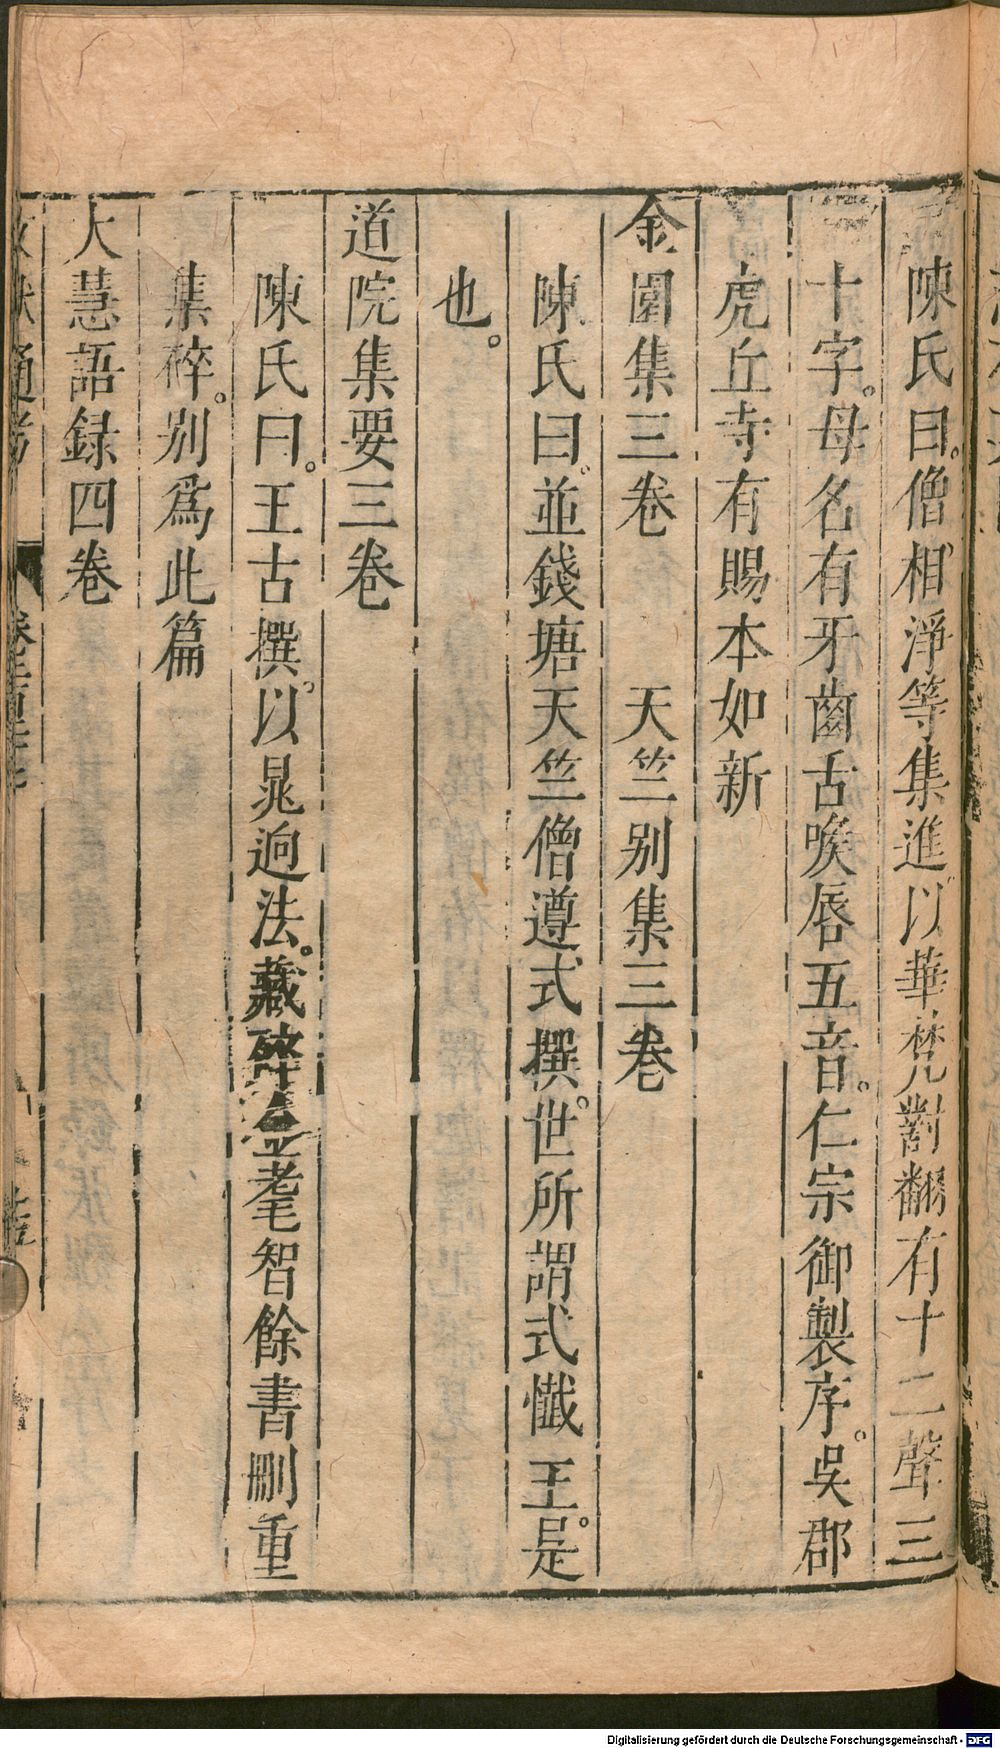 陳氏曰。僧相淨等集進以華梵對翻有十二聲三
十字。母名有牙齒舌喉唇五音。仁宗御製序。吳郡
虎丘寺有賜本如新
金園集三卷　天竺別集三卷
陳氏曰。並錢塘天竺僧遵式撰。世所謂式懺王。是
也。
道院集要三卷
陳氏曰。王古撰。以晁迥法。藏碎金耄智餘書刪重
集碎。別爲此篇
大慧語録四卷
文獻通考　卷二百二十七
Digitalisierung gefördert durch die Deutsche Forschungsgemeinschaft - DFG